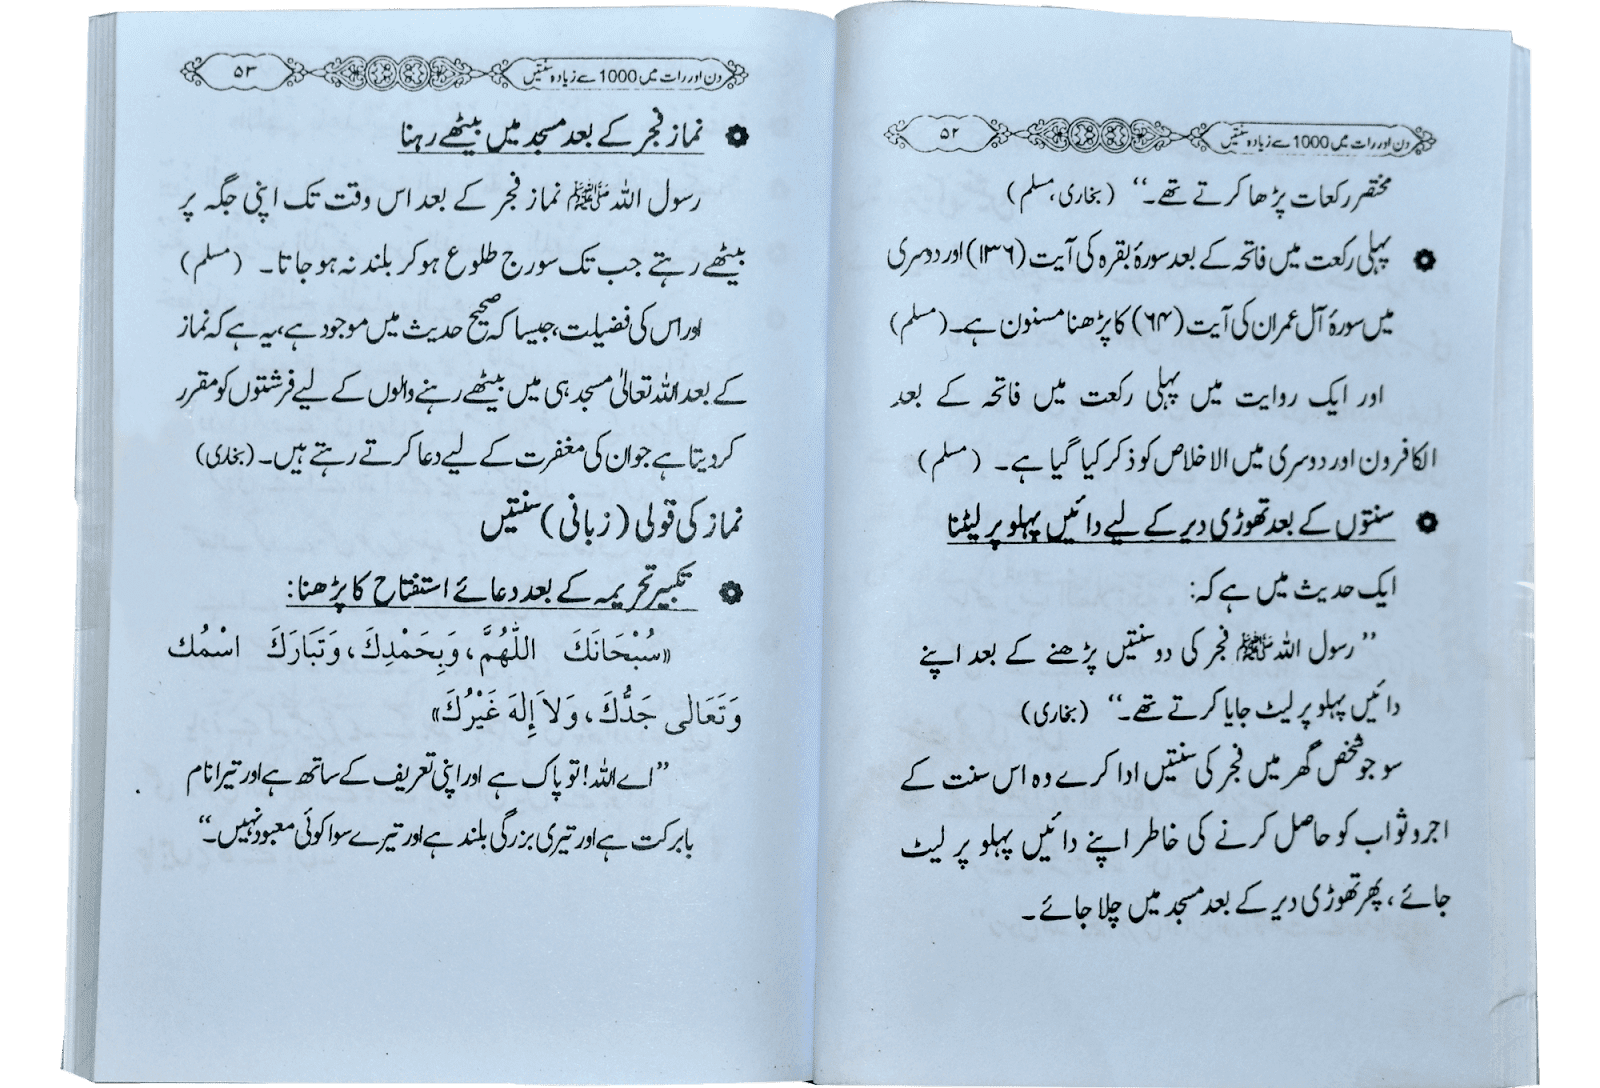 دن اور رات میں 1000 سے زیادہ سنتیں ۵۲
مختصر رکعات پڑھا کرتے تھے۔“ (بخاری، مسلم)
پہلی رکعت میں فاتحہ کے بعد سورۂ بقرہ کی آیت (۱۳۶) اور دوسری
میں سورۂ آل عمران کی آیت (۶۴) کا پڑھنا مسنون ہے۔ (مسلم)
اور ایک روایت میں پہلی رکعت میں فاتحہ کے بعد
الکافرون اور دوسری میں الاخلاص کو ذکر کیا گیا ہے۔ (مسلم)
سنتوں کے بعد تھوڑی دیر کے لیے دائیں پہلو پر لیٹنا
ایک حدیث میں ہے کہ:
”رسول اللہ ﷺ فجر کی دو سنتیں پڑھنے کے بعد اپنے
دائیں پہلو پر لیٹ جایا کرتے تھے۔“ (بخاری)
سو جو شخص گھر میں فجر کی سنتیں ادا کرے وہ اس سنت کے
اجر و ثواب کو حاصل کرنے کی خاطر اپنے دائیں پہلو پر لیٹ
جائے، پھر تھوڑی دیر کے بعد مسجد میں چلا جائے۔
دن اور رات میں 1000 سے زیادہ سنتیں ۵۳
نماز فجر کے بعد مسجد میں بیٹھے رہنا
رسول اللہ ﷺ نماز فجر کے بعد اس وقت تک اپنی جگہ پر
بیٹھے رہتے جب تک سورج طلوع ہو کر بلند نہ ہو جاتا۔ (مسلم)
اور اس کی فضیلت، جیسا کہ صحیح حدیث میں موجود ہے، یہ ہے کہ نماز
کے بعد اللہ تعالیٰ مسجد ہی میں بیٹھے رہنے والوں کے لیے فرشتوں کو مقرر
کر دیتا ہے جو ان کی مغفرت کے لیے دعا کرتے رہتے ہیں۔ (بخاری)
نماز کی قولی (زبانی) سنتیں
تکبیر تحریمہ کے بعد دعائے استفتاح کا پڑھنا:
«سُبْحَانَكَ اللّٰهُمَّ، وَبِحَمْدِكَ، وَتَبَارَكَ اسْمُك
وَتَعَالٰی جَدُّكَ، وَلاَ إِلٰهَ غَيْرُكَ»
”اے اللہ! تو پاک ہے اور اپنی تعریف کے ساتھ ہے اور تیرا نام
بابرکت ہے اور تیری بزرگی بلند ہے اور تیرے سوا کوئی معبود نہیں۔“